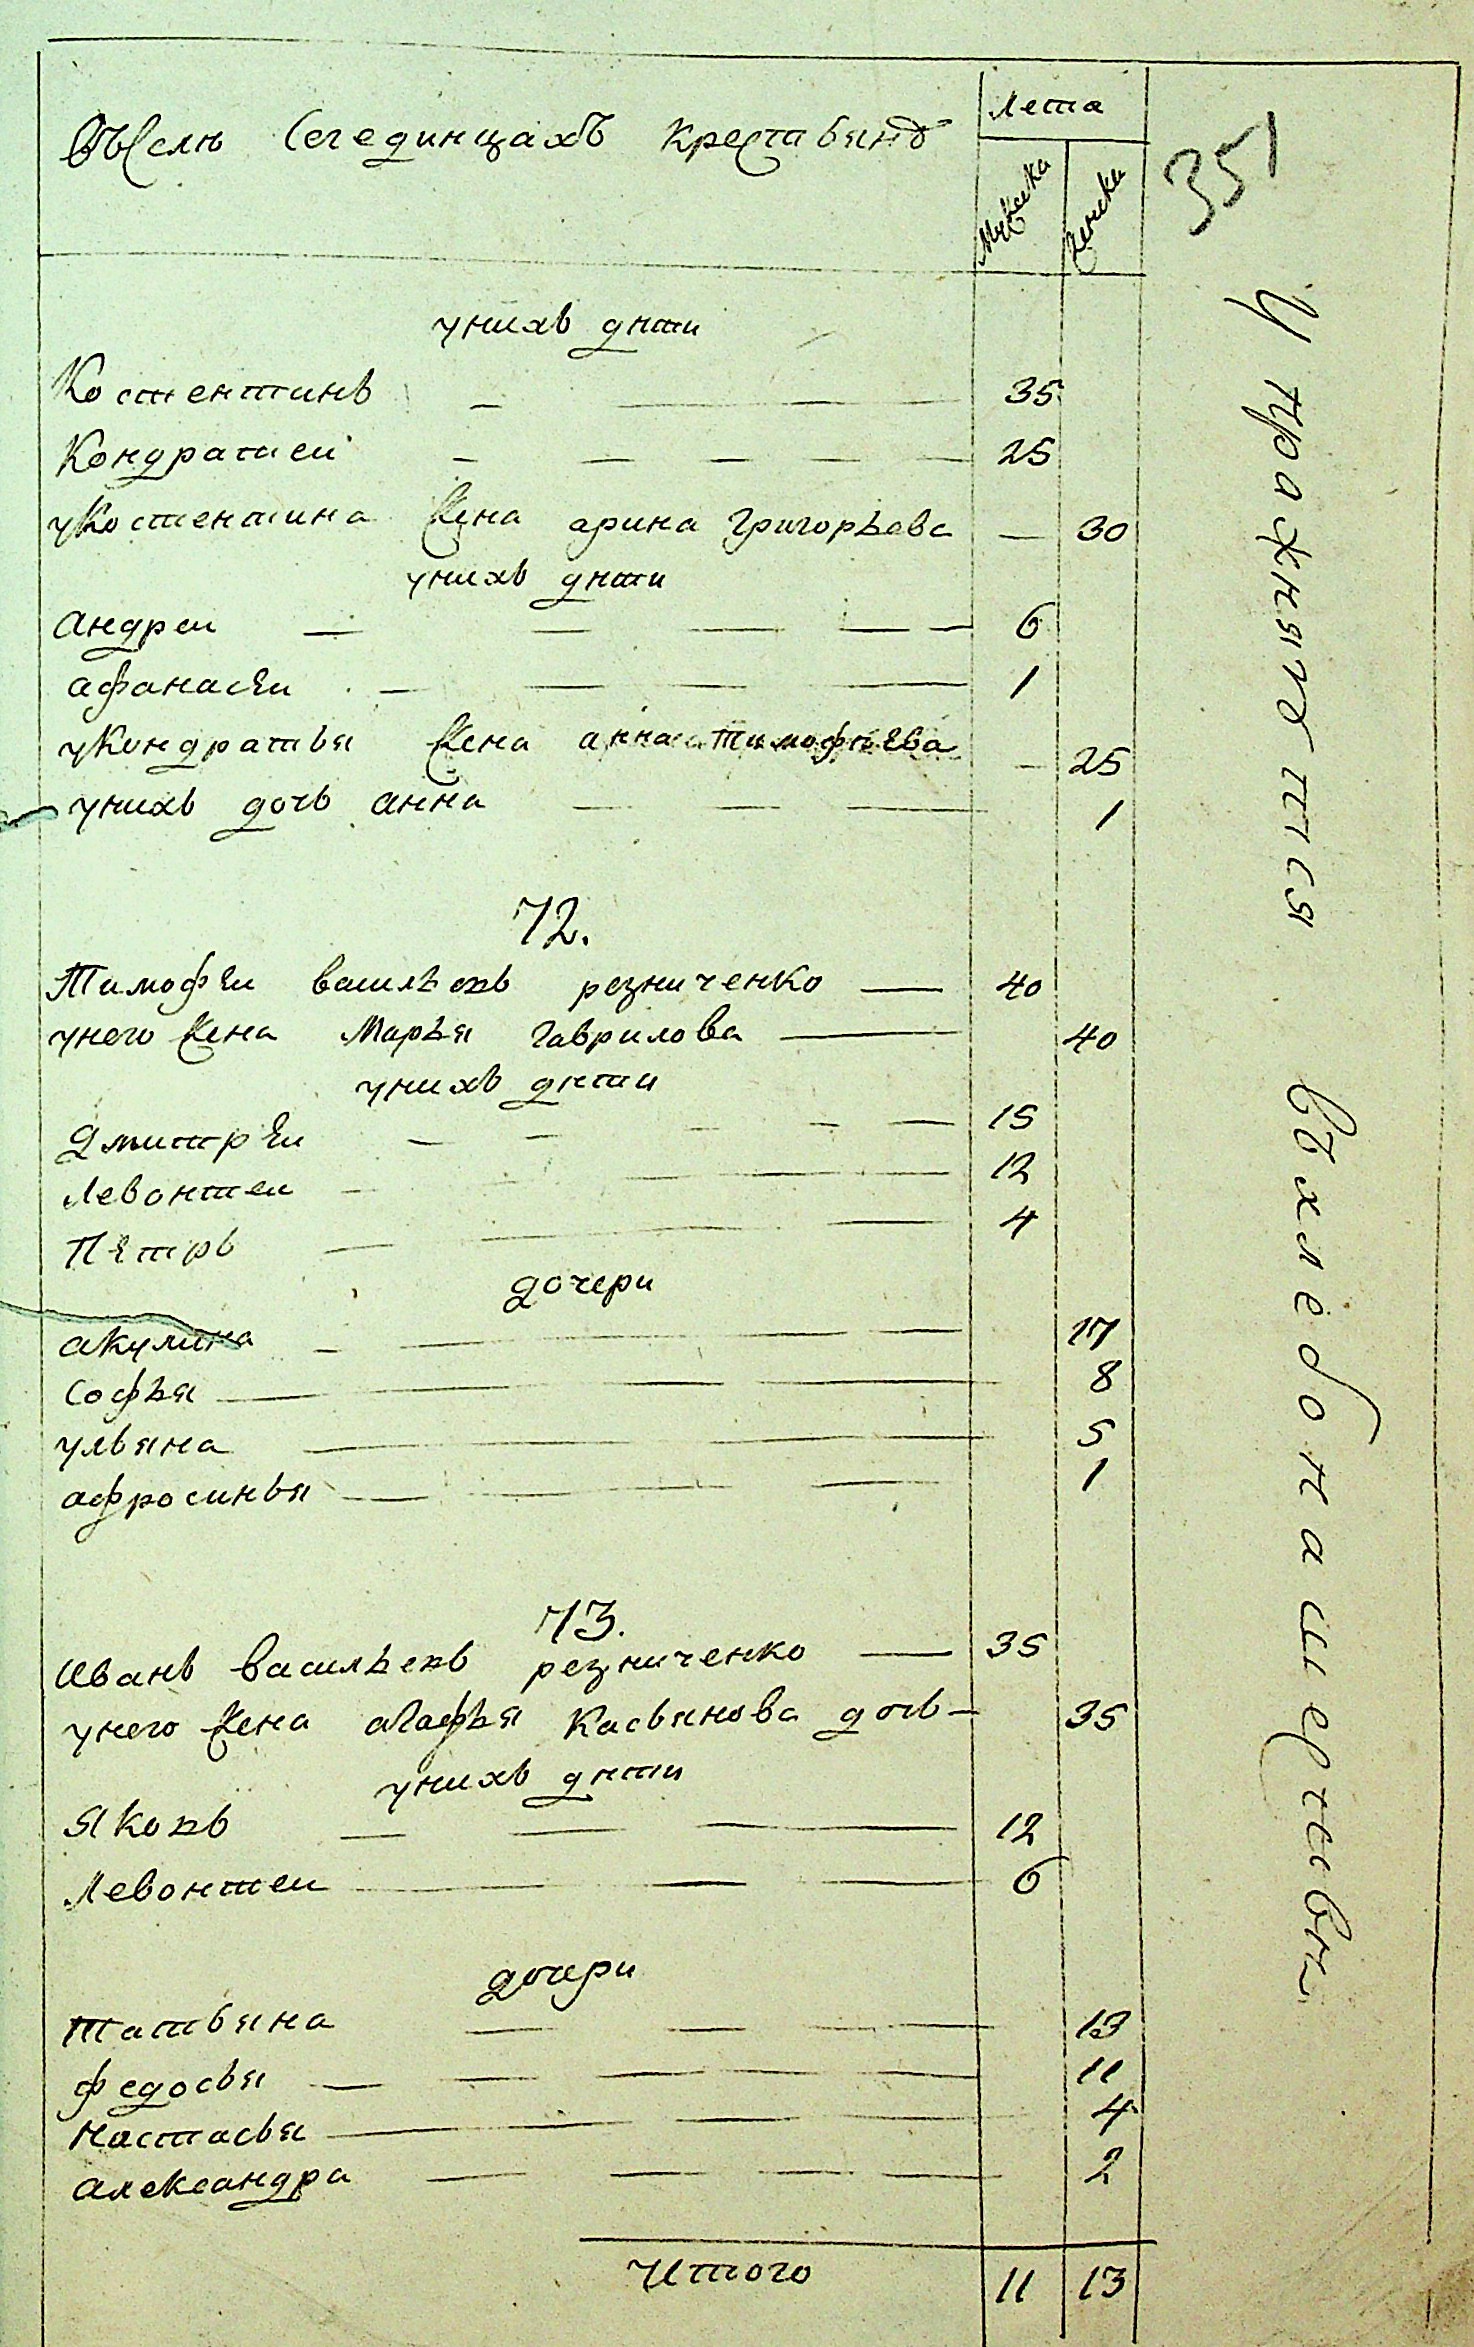 Въселѣ Сегединцахъ крестьянъ
Лета
Мужска
Женска
351
унихъ дѣти
Костентинъ 35
Кондратией 25
уКостентина жена арина Григорьева 30
унихъ дѣти
андреи 6
афанасеи 1
укондратья жена анна Тимофѣева 25
унихъ дочь анна 1
72.
Тимофеи васильевъ резниченко 40
унего жена Марья Гаврилова 40
унихъ дѣти
Дмитреи 15
Левонтеи 12
Петръ 4
дочери
акулина 17
Софья 8
ульяна 5
афросинья 1
73.
Иванъ васильевъ резниченко 35
унего жена агафья Касьянова дочь 35
унихъ дѣти
Яковъ 12
Левонтеи 6
дочери
Татьяна 13
федосья 11
Настасья 4
александра 2
Итого 11 13
Упражняется вхлебопашерствы